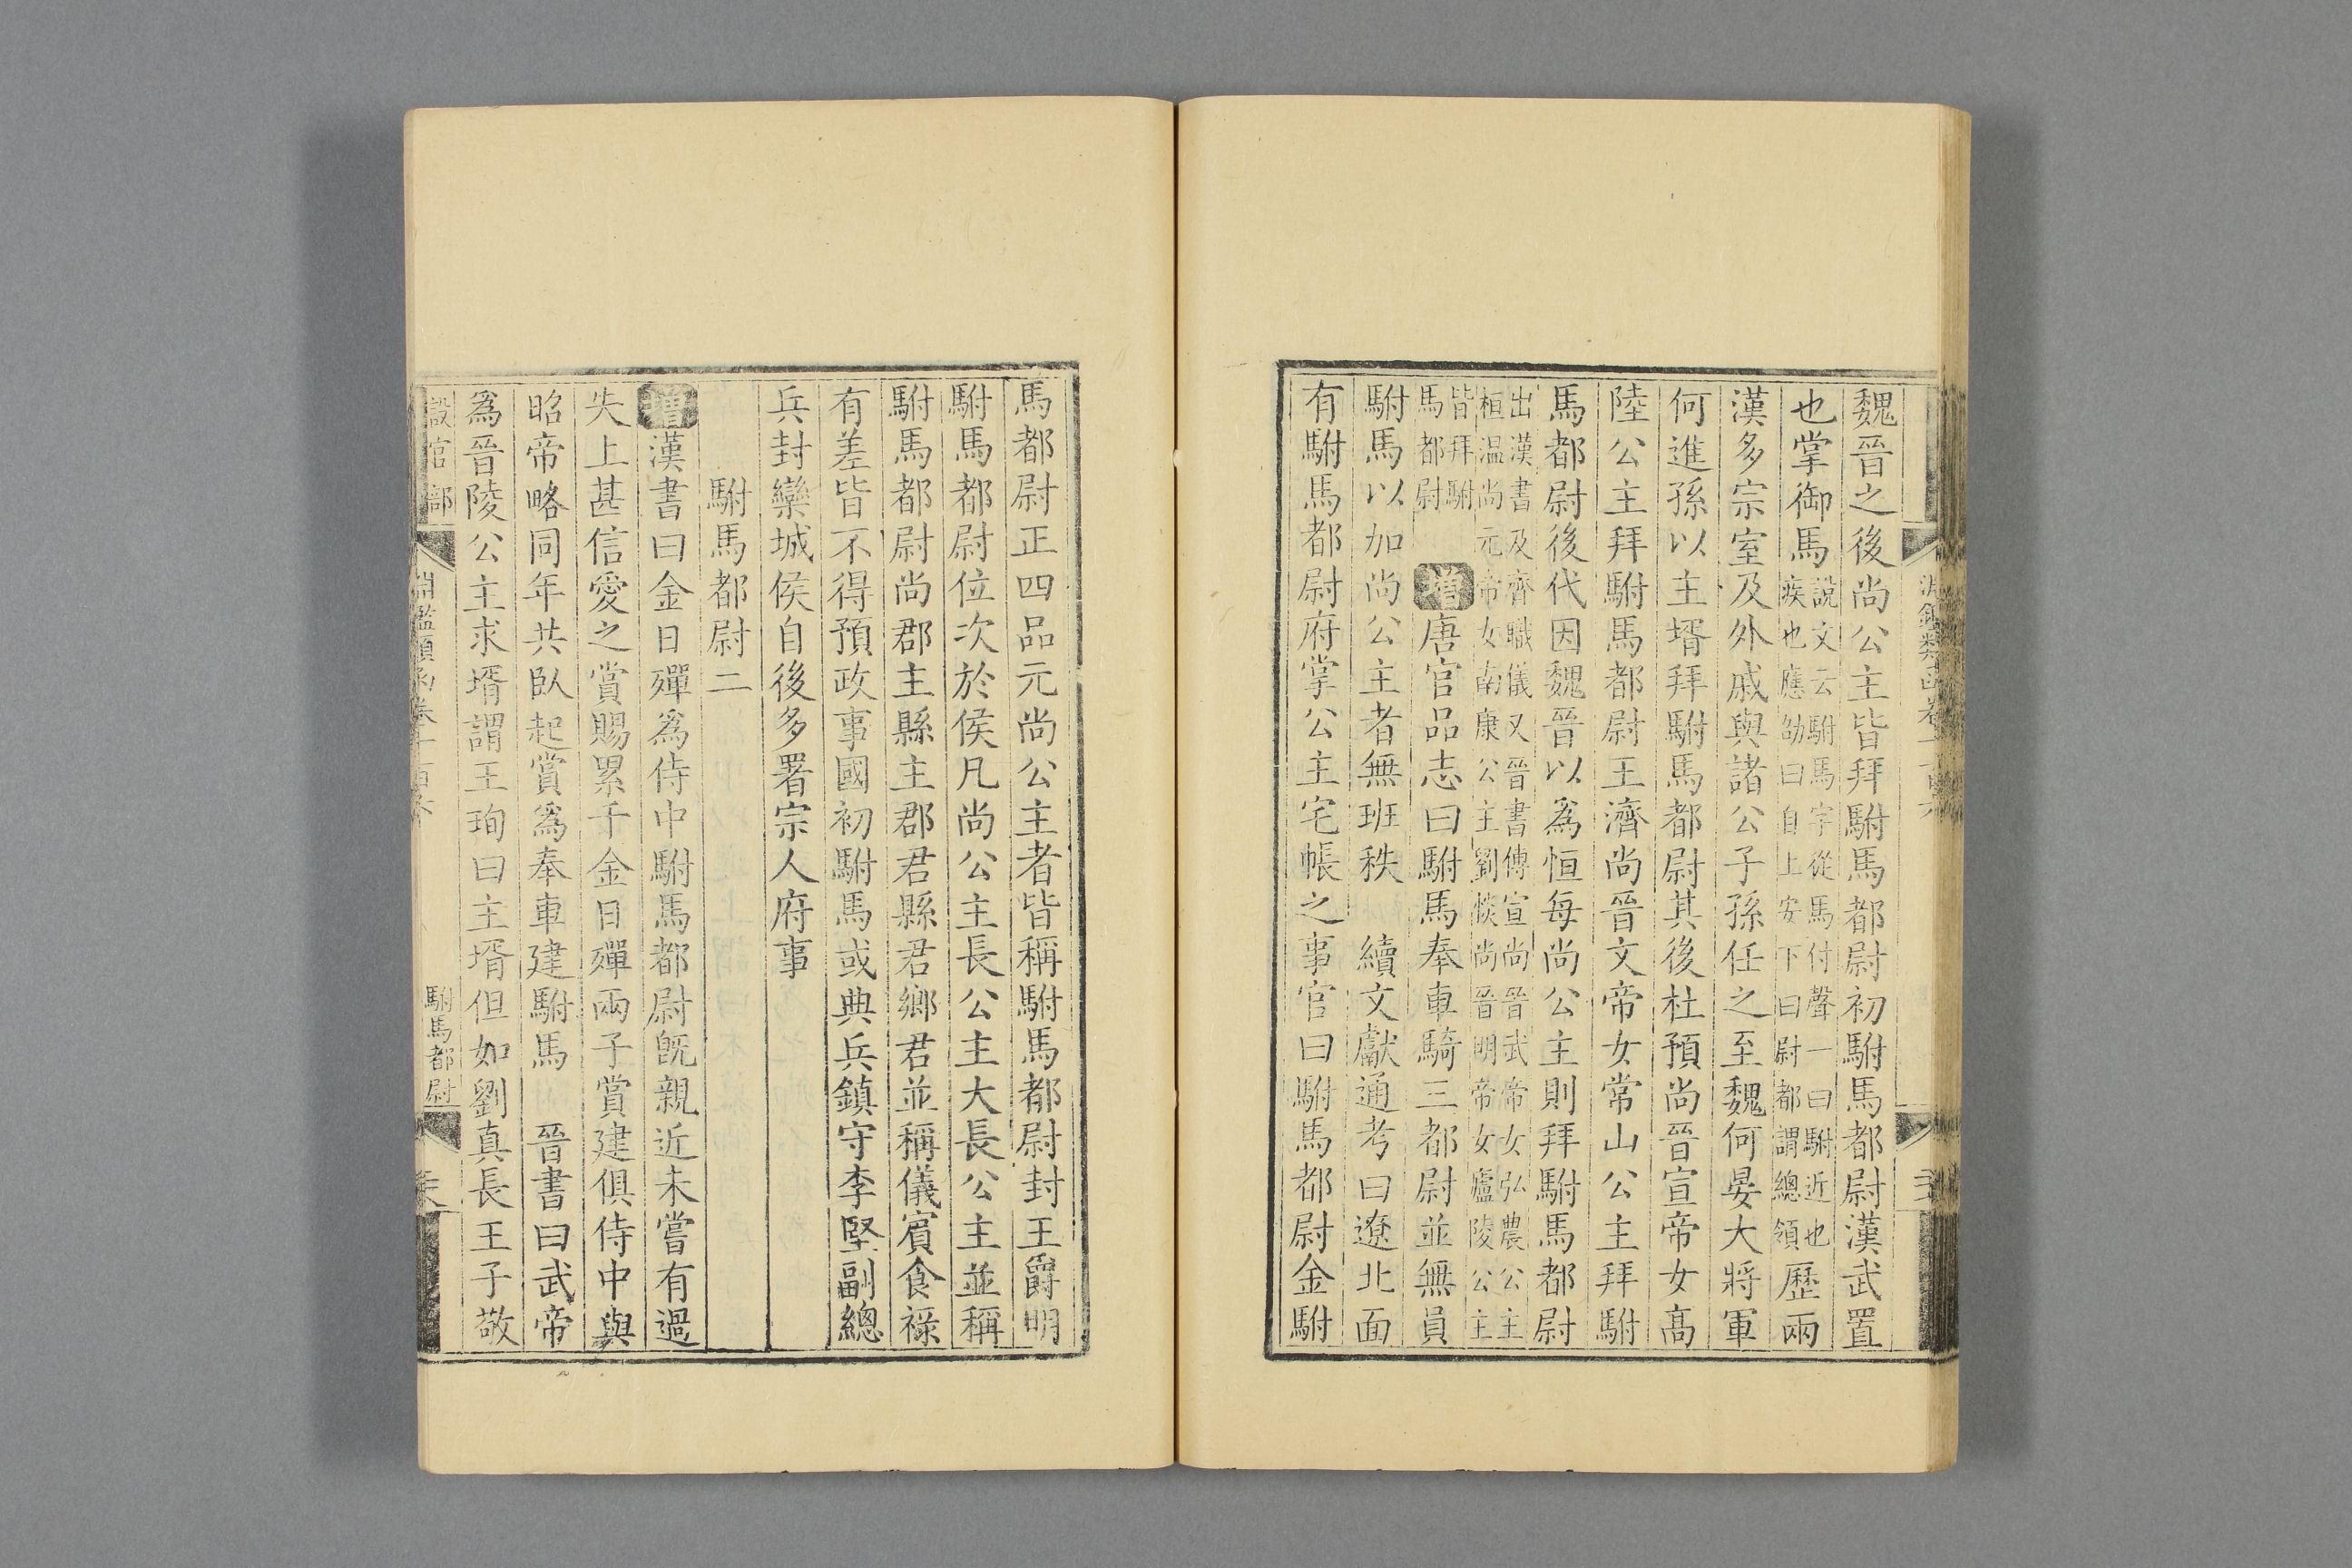 魏晉之後尚公主皆拜駙馬都尉初駙馬都尉漢武置
也掌御馬說文云駙馬字從馬付聲一曰駙近也疾也應劭曰自上安下曰尉都謂總領歷兩
漢多宗室及外戚與諸公子孫任之至魏何晏大將軍
何進孫以主壻拜駙馬都尉其後杜預尚晉宣帝女高
陸公主拜駙馬都尉王濟尚晉文帝女常山公主拜駙
馬都尉後代因魏晉以爲恒每尚公主則拜駙馬都尉
出漢書及齊職儀又晉書傅宣尚晉武帝女弘農公主桓溫尚元帝女南康公主劉惔尚晉明帝女廬陵公主
皆拜駙馬都尉 增唐官品志曰駙馬奉車騎三都尉並無員
駙馬以加尚公主者無班秩 續文獻通考曰遼北面
有駙馬都尉府掌公主宅帳之事官曰駙馬都尉金駙
馬都尉正四品元尚公主者皆稱駙馬都尉封王爵明
駙馬都尉位次於侯凡尚公主長公主大長公主並稱
駙馬都尉尚郡主縣主郡君縣君鄉君並稱儀賓食祿
有差皆不得預政事國初駙馬或典兵鎮守李堅副總
兵封欒城侯自後多署宗人府事
駙馬都尉二
增漢書曰金日磾爲侍中駙馬都尉旣親近未嘗有過
失上甚信愛之賞賜累千金日磾兩子賞建俱侍中與
昭帝略同年共臥起賞爲奉車建駙馬 晉書曰武帝
爲晉陵公主求壻謂王珣曰主壻但如劉真長王子敬
設官部
淵鑑類函卷一百六
駙馬都尉